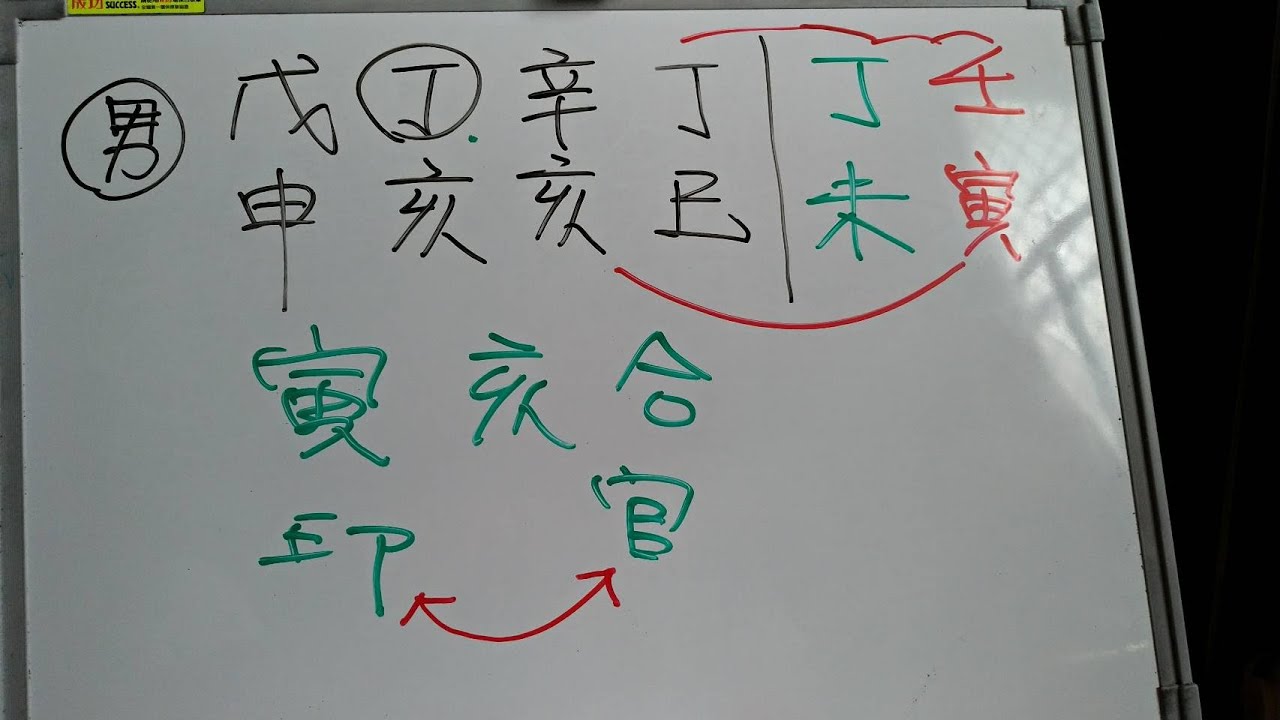 SUCCESS.
男 戊 丁 辛 丁 丁 壬
申 亥 亥 巳 未 寅
寅 亥 合
印 官